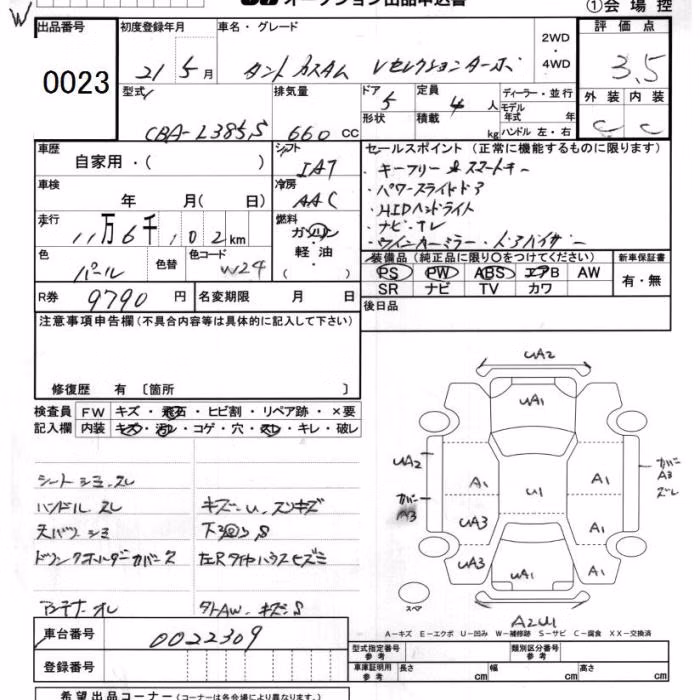 オークション出品申込書
①会場控
W
出品番号
0023
初度登録年月
21年 5月
車名・グレード
タント カスタム Vセレクションターボ
2WD
・
4WD
評価点
3.5
型式
CBA-L385S
排気量
660 CC
ドア
5
形状
定員
4人
積載
kg
ディーラー・並行
モデル
年式 年
ハンドル 左・右
外装 内装
C C
車歴
自家用・( )
シフト
IAT
車検
年 月( 日)
冷房
AAC
走行
11万6千,02km
燃料
ガソリン
・
軽油
( )
色
パール
色替
色コード
W24
R券
9790円
名変期限 月 日
セールスポイント(正常に機能するものに限ります)
・キーフリー スマートキー
・パワースライドドア
・HIDヘッドライト
・ナビ・TV
・ウインカーミラー・ドアバイザー
装備品(純正品に限り○をつけてください)
PS PW ABS エアB AW
SR ナビ TV カワ
新車保証書
有・無
後日品
注意事項申告欄(不具合内容等は具体的に記入して下さい)
修復歴 有〔箇所 〕
検査員
記入欄
FW キズ・飛石・ヒビ割・リペア跡・×要
内装 キズ・汚レ・コゲ・穴・スレ・キレ・破レ
シートシミ、スレ
ハンドル スレ
キズ・U、スリキズ
天バリ シミ
下回りS
ドリンクホルダーカバー欠
左Rタイヤハウスヒズミ
アンテナ オレ
タトAW、キズS
UA2
UA1
UA2
A1
A1
カバー
A3
ズレ
カバー
A3
U1
UA3
A1
UA3
UA1
A1
スペア
A2U1
A-キズ E-エクボ U-凹み W-補修跡 S-サビ C-腐食 XX-交換済
車台番号
0022309
登録番号
型式指定番号
参考
類別区分番号
参考
車庫証明用
参考
長さ cm 幅 cm 高さ cm
希望出品コーナー(コーナーは各会場により異なります。)